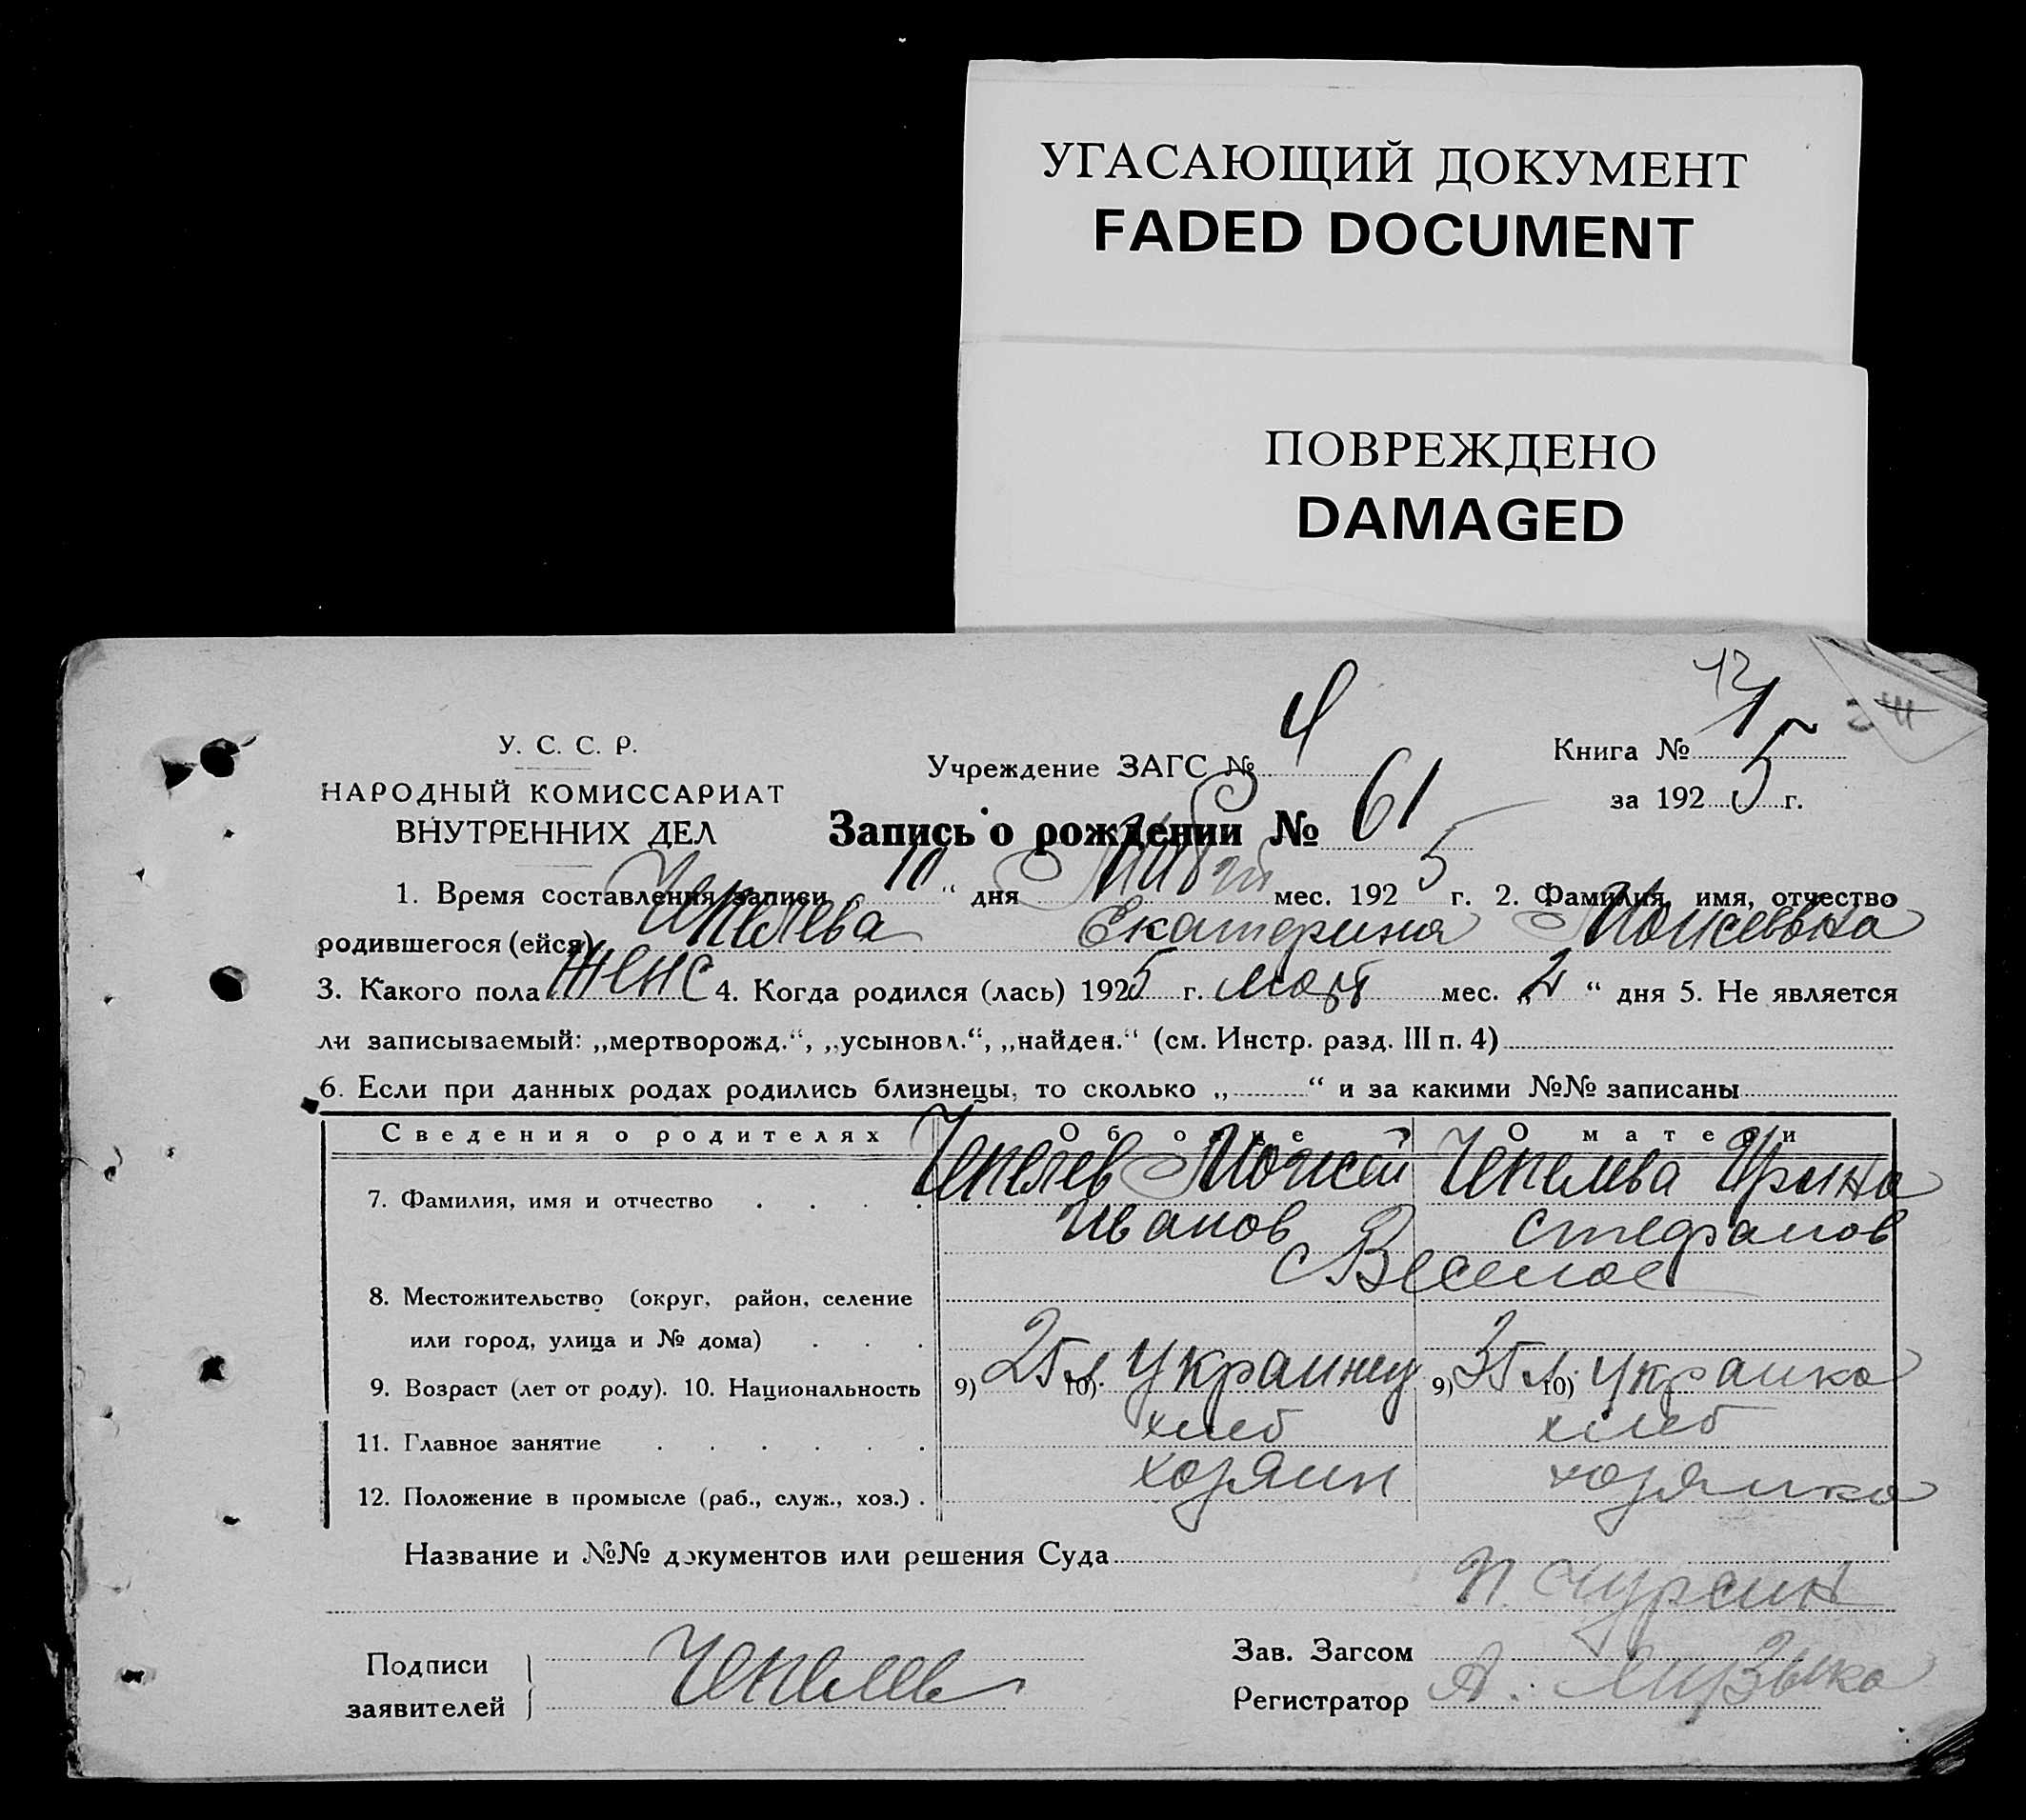 УГАСАЮЩИЙ ДОКУМЕНТ
FADED DOCUMENT
ПОВРЕЖДЕНО
DAMAGED
У. С. С. Р.
НАРОДНЫЙ КОМИССАРИАТ
ВНУТРЕННИХ ДЕЛ
Учреждение ЗАГС № 4
Книга № 1
за 1925 г.
Запись о рождении № 61
1. Время составления записи „10“ дня мес. 1925 г. 2. Фамилия, имя, отчество
родившегося (ейся) Чепелева Екатерина Моисеевна
3. Какого пола женс 4. Когда родился (лась) 1925 г. март мес. „2“ дня 5. Не является
ли записываемый: „мертворожд.“, „усыновл.“, „найден.“ (см. Инстр. разд. III п. 4)
6. Если при данных родах родились близнецы, то сколько „ “ и за какими №№ записаны
Сведения о родителях Об отце О матери
7. Фамилия, имя и отчество Чепелев Моисей Чепелева Ирина
Иванов Стефанов
8. Местожительство (округ, район, селение с Веселое
или город, улица и № дома)
9. Возраст (лет от роду). 10. Национальность 9) 25 л. 10) Украинец 9) 35 л. 10) Украинка
11. Главное занятие хлеб хлеб
12. Положение в промысле (раб., служ., хоз.) хозяин хозяйка
Название и №№ документов или решения Суда
Подписи заявителей Чепелев
Зав. Загсом
Регистратор А. Музыка